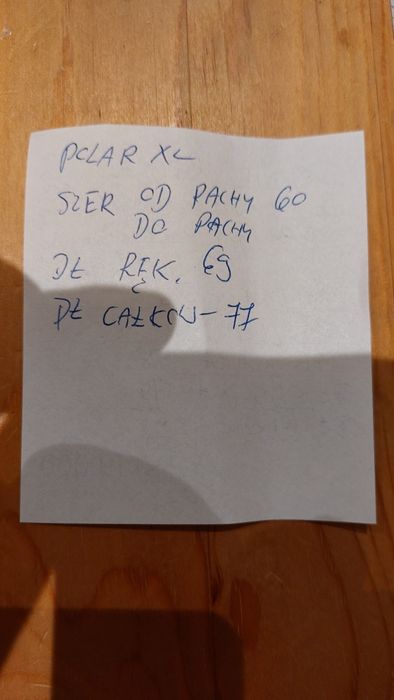 POLAR XL
SZER OD PACHY 60
DO PACHY
DŁ RĘK. 69
DŁ CAŁKOW - 77